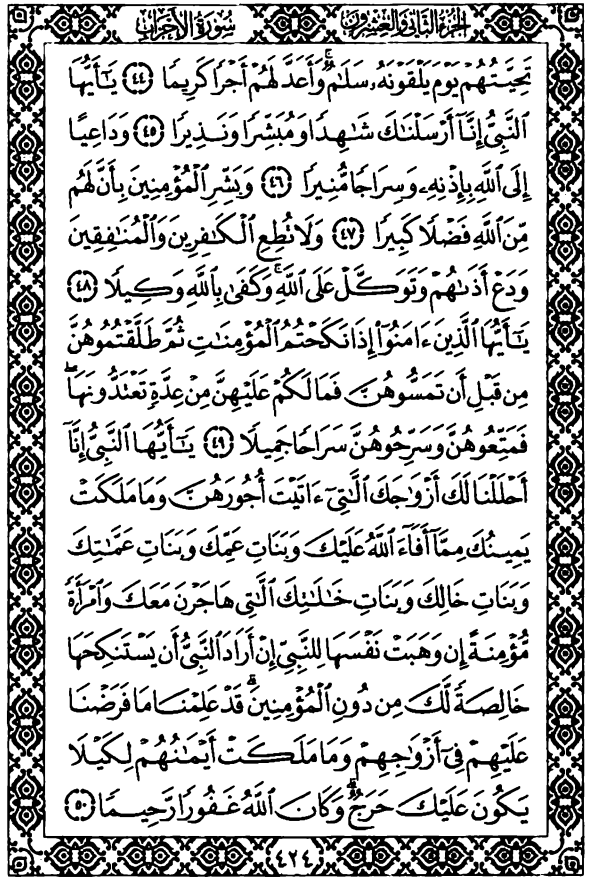 الجزء الثاني والعشرون سورة الأحزاب
تَحِيَّتُهُمْ يَوْمَ يَلْقَوْنَهُۥ سَلَٰمٌۚ وَأَعَدَّ لَهُمْ أَجْرًا كَرِيمًا ﴿٤٤﴾ يَٰٓأَيُّهَا
ٱلنَّبِىُّ إِنَّآ أَرْسَلْنَٰكَ شَٰهِدًا وَمُبَشِّرًا وَنَذِيرًا ﴿٤٥﴾ وَدَاعِيًا
إِلَى ٱللَّهِ بِإِذْنِهِۦ وَسِرَاجًا مُّنِيرًا ﴿٤٦﴾ وَبَشِّرِ ٱلْمُؤْمِنِينَ بِأَنَّ لَهُم
مِّنَ ٱللَّهِ فَضْلًا كَبِيرًا ﴿٤٧﴾ وَلَا تُطِعِ ٱلْكَٰفِرِينَ وَٱلْمُنَٰفِقِينَ
وَدَعْ أَذَىٰهُمْ وَتَوَكَّلْ عَلَى ٱللَّهِۚ وَكَفَىٰ بِٱللَّهِ وَكِيلًا ﴿٤٨﴾
يَٰٓأَيُّهَا ٱلَّذِينَ ءَامَنُوٓا۟ إِذَا نَكَحْتُمُ ٱلْمُؤْمِنَٰتِ ثُمَّ طَلَّقْتُمُوهُنَّ
مِن قَبْلِ أَن تَمَسُّوهُنَّ فَمَا لَكُمْ عَلَيْهِنَّ مِنْ عِدَّةٍ تَعْتَدُّونَهَاۖ
فَمَتِّعُوهُنَّ وَسَرِّحُوهُنَّ سَرَاحًا جَمِيلًا ﴿٤٩﴾ يَٰٓأَيُّهَا ٱلنَّبِىُّ إِنَّآ
أَحْلَلْنَا لَكَ أَزْوَٰجَكَ ٱلَّٰتِىٓ ءَاتَيْتَ أُجُورَهُنَّ وَمَا مَلَكَتْ
يَمِينُكَ مِمَّآ أَفَآءَ ٱللَّهُ عَلَيْكَ وَبَنَاتِ عَمِّكَ وَبَنَاتِ عَمَّٰتِكَ
وَبَنَاتِ خَالِكَ وَبَنَاتِ خَٰلَٰتِكَ ٱلَّٰتِى هَاجَرْنَ مَعَكَ وَٱمْرَأَةً
مُّؤْمِنَةً إِن وَهَبَتْ نَفْسَهَا لِلنَّبِىِّ إِنْ أَرَادَ ٱلنَّبِىُّ أَن يَسْتَنكِحَهَا
خَالِصَةً لَّكَ مِن دُونِ ٱلْمُؤْمِنِينَۗ قَدْ عَلِمْنَا مَا فَرَضْنَا
عَلَيْهِمْ فِىٓ أَزْوَٰجِهِمْ وَمَا مَلَكَتْ أَيْمَٰنُهُمْ لِكَيْلَا
يَكُونَ عَلَيْكَ حَرَجٌۗ وَكَانَ ٱللَّهُ غَفُورًا رَّحِيمًا ﴿٥٠﴾
٤٢٤